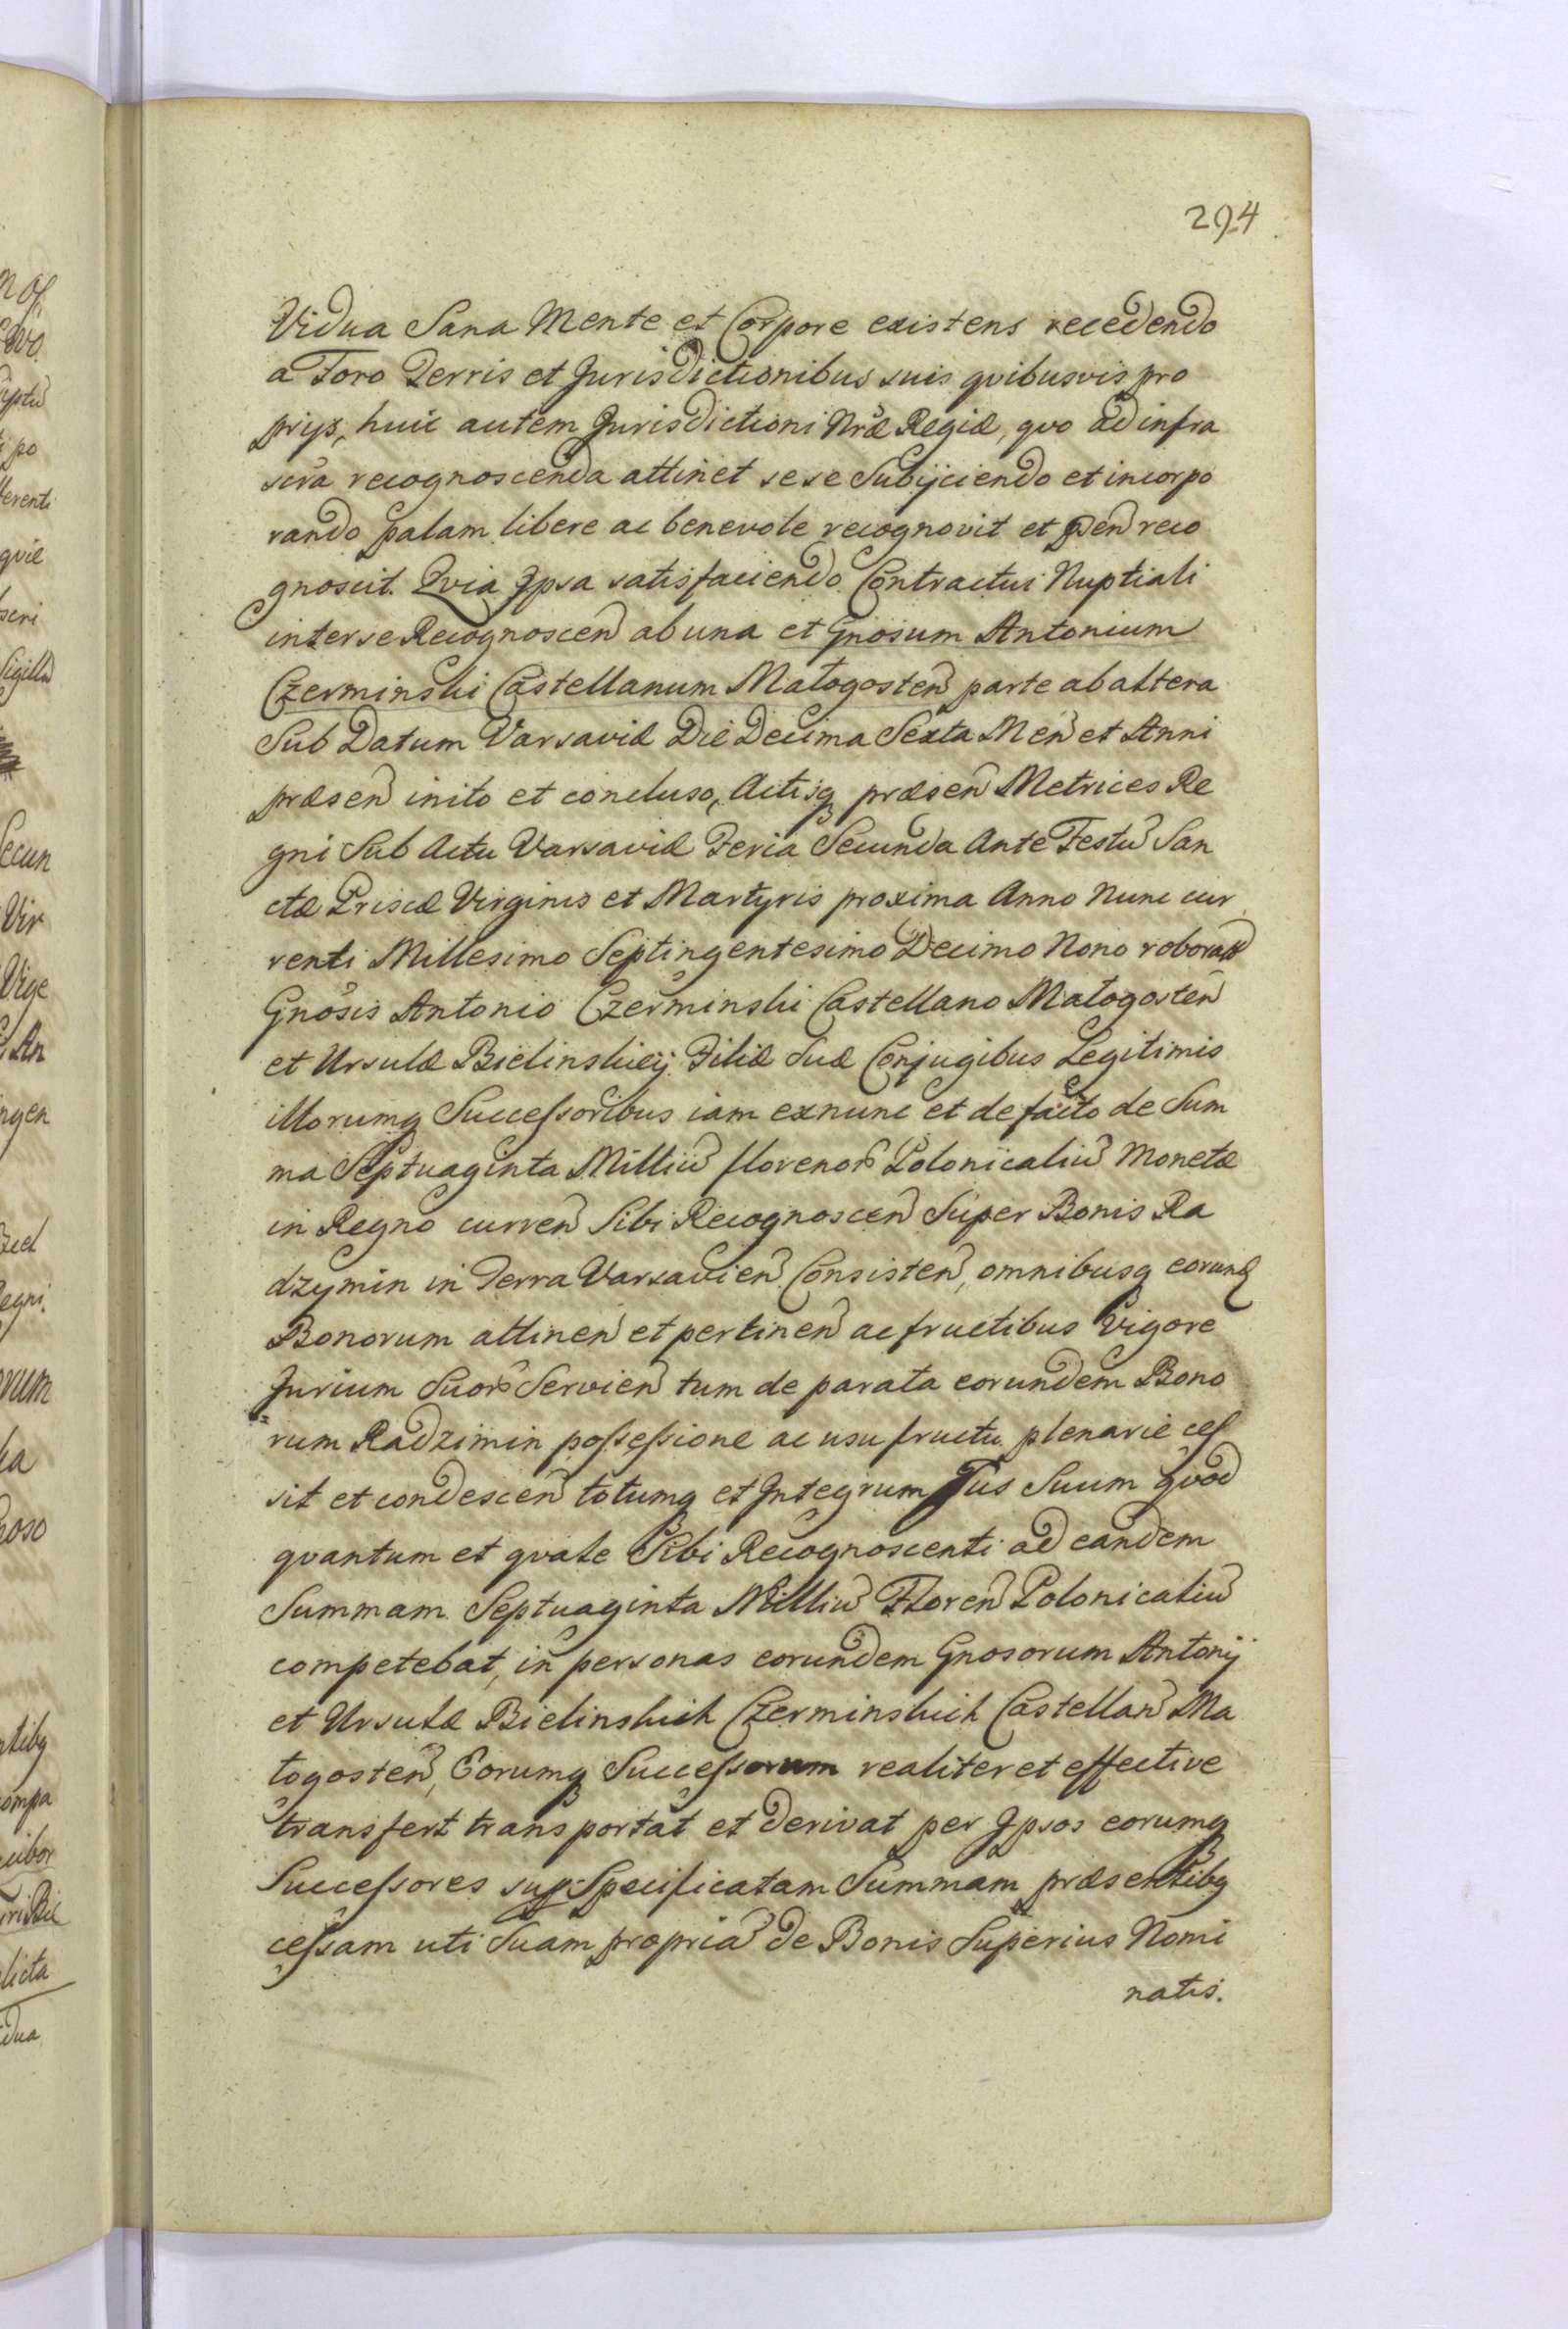 294
Vidua Sana Mente et Corpore existens recedendo
a Foro Terris et Jurisdictionibus suis qvibusvis pro
prijs, huic autem Jurisdictioni Nræ Regiæ, qvo ad infra
scra recognoscenda attinet sese Subijciendo et incorpo
rando palam libere ac benevole recognovit et Pen reco
gnoscit. Qvia Ipsa satisfaciendo Contractui Nuptiali
inter se Recognoscen ab una et Gnosum Antonium
Czerminski Castellanum Małogosten parte ab altera
Sub Datum Varsaviæ Die Decima Sexta Men et Anni
præsen inito et concluso, Actisq præsen Metrices Re
gni Sub Actu Varsaviæ Feria Secunda Ante Festu San
ctæ Priscæ Virginis et Martyris proxima Anno Nunc cur
renti Millesimo Septingentesimo Decimo Nono roborat
Gnosis Antonio Czerminski Castellano Małogosten
et Ursulæ Bielinskiey Filiæ Suæ Conjugibus Legitimis
illorumq Successoribus iam exnunc et de facto de Sum
ma Septuaginta Milliu florenor Polonicaliu Monetæ
in Regno curren Sibi Recognoscen Super Bonis Ra
dzymin in Terra Varsavien Consisten, omnibusq eorund
Bonorum attinen et pertinen ac fructibus Vigore
Jurium Suor Servien tum de parata eorundem Bono
rum Radzimin possessione ac usufructu plenarie ces
sit et condescen totumq et Integrum Jus Suum qvod
qvantum et qvale Sibi Recognoscenti ad eandem
Summam Septuaginta Milliu Floren Polonicaliu
competebat, in personas eorundem Gnosorum Antonij
et Ursulæ Bielinskich Czerminskich Castellan Ma
łogosten, Eorumq Successorum realiter et effective
transfert transportat et derivat per Ipsos eorumq
Successores sup Specificatam Summam præsentibq
cessam uti Suam propria de Bonis Superius Nomi
natis.